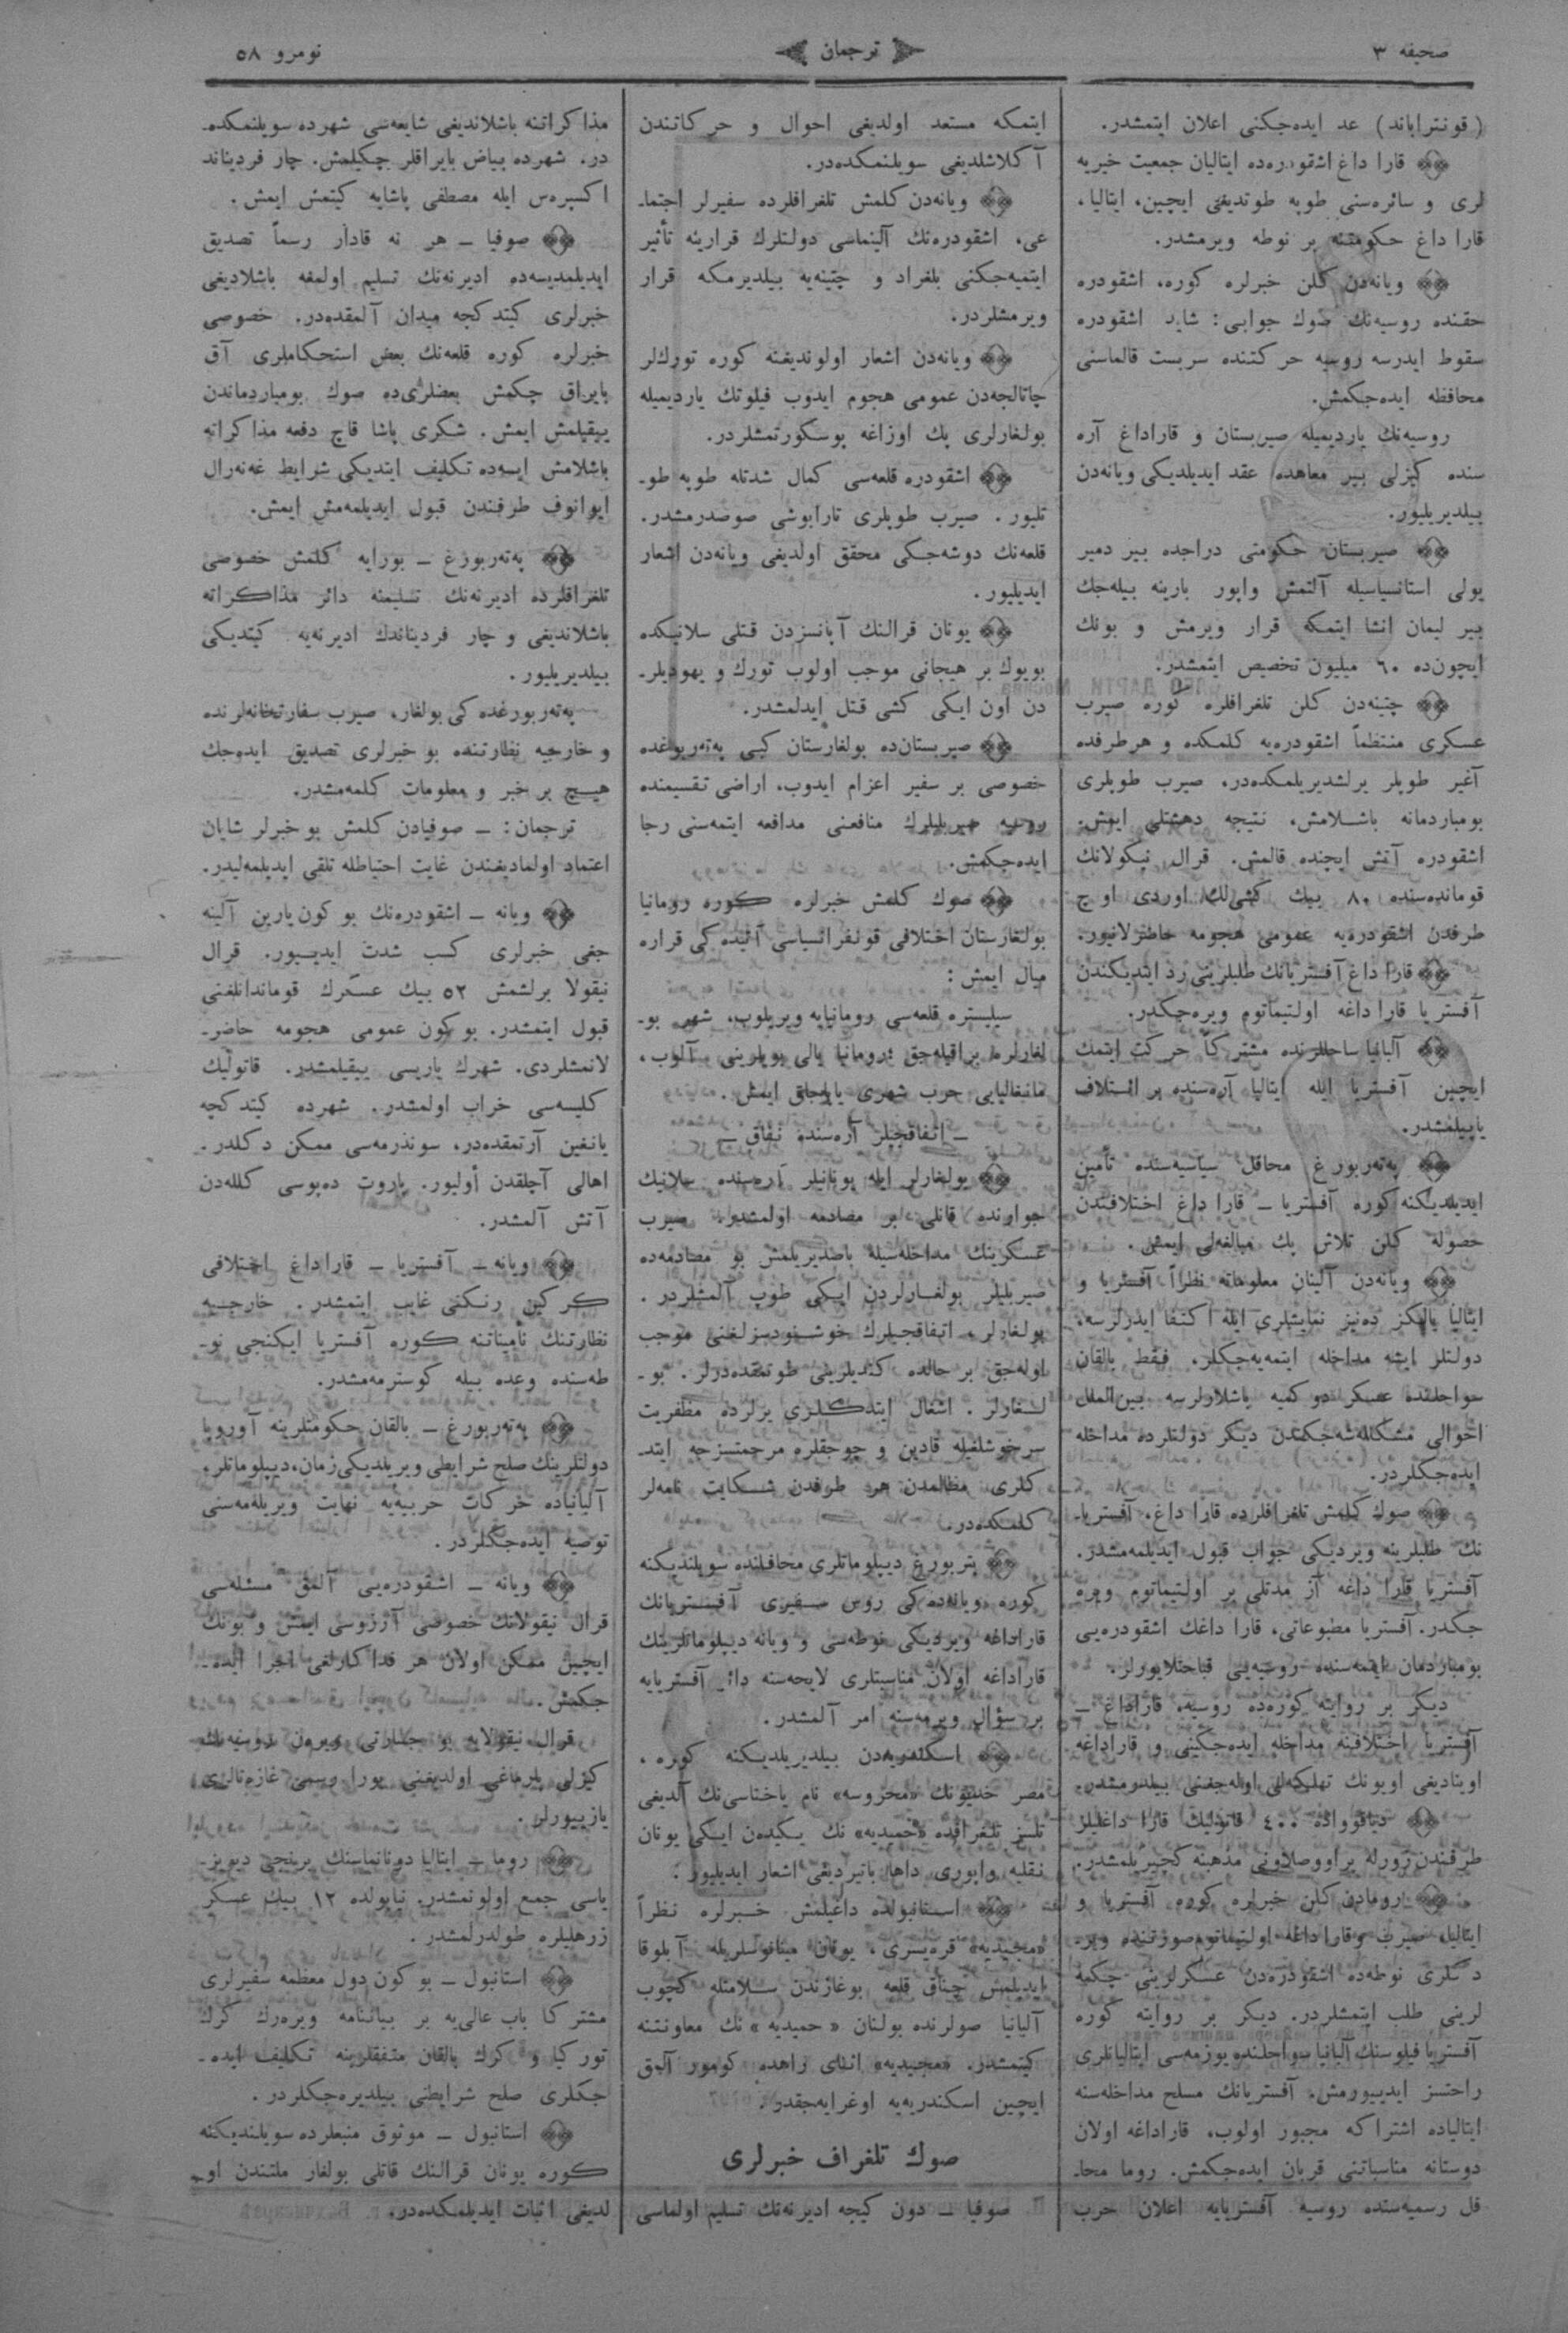 صحیفه ۳
ترجمان
نومرو ۵۸
(قونتراباند) عد ایده‌جکنی اعلان ایتمشدر.
قارا داغ اشقودره‌ده ایتالیان جمعیت خیریه
لری و سائره‌سنی طوپه طوتدیغی ایچین، ایتالیا،
قارا داغ حکومتنه بر نوطه ویرمشدر.
ویانه‌دن کلن خبرلره کوره، اشقودره
حقنده روسیه‌نك صوك جوابی: شاید اشقودره
سقوط ایدرسه روسیه حرکتنده سربست قالماسنی
محافظه ایده‌جکمش.
روسیه‌نك یاردیمیله صیربستان و قاراداغ آره
سنده کیزلی بیر معاهده عقد ایدیلدیکی ویانه‌دن
بیلدیریلیور.
صیربستان حکومتی دراجده بیر دمیر
یولی استانسیاسیله آلتمش واپور بارینه بیله‌جك
بیر لیمان انشا ایتمکه قرار ویرمش و بونك
ایچون‌ده ٦٠ میلیون تخصیص ایتمشدر.
چتینه‌دن کلن تلغرافلره کوره صیرب
عسکری منتظماً اشقودره‌یه کلمکده و هر طرفده
آغیر طوپلر یرلشدیریلمکده‌در، صیرب طوپلری
بومباردمانه باشلامش، نتیجه دهشتلی ایمش.
اشقودره آتش ایچنده قالمش. قرال نیکولانك
قومانده‌سنده ٨٠ بیك کشی‌لك اوردی اوچ
طرفدن اشقودره‌یه عمومی هجومه حاضرلانیور.
قارا داغ آفستریانك طلبلرینی رد ایتدیکندن
آفستریا قارا داغه اولتیماتوم ویره‌جکدر.
آلبانیا ساحللرنده مشترکاً حرکت ایتمك
ایچین آفستریا ایله ایتالیا آره‌سنده بر ائتلاف
یاپیلمشدر.
په‌ته‌ربورغ محافل سیاسیه‌سنده تأمین
ایدیلدیکنه کوره آفستریا ـ قارا داغ اختلافندن
حصوله کلن تلاش پك مبالغه‌لی ایمش.
ویانه‌دن آلینان معلوماته نظراً آفستریا و
ایتالیا یالیکز ده‌نیز نمایشلری ایله اکتفا ایدرلرسه،
دولتلر ایشه مداخله ایتمه‌یه‌جکلر، فقط بالقان
سواحلنده عسکر دوکمیه باشلارلرسه بین‌الملل
احوالی مشکله‌شه‌جکندن دیکر دولتلرده مداخله
ایده‌جکلردر.
صوك کلمش تلغرافلرده قارا داغ، آفستریا‌ـ
نك طلبلرینه ویردیکی جواب قبول ایدیلمه‌مشدر.
آفستریا قارا داغه آز مدتلی بر اولتیماتوم ویره
جکدر. آفستریا مطبوعاتی، قارا داغك اشقودره‌یی
بومباردمان ایتمه‌سنده روسیه‌یی قباحتلایورلر.
دیکر بر روایته کوره‌ده روسیه، قاراداغ ـ
آفستریا اختلافینه مداخله ایده‌جکینی و قاراداغه
اوینادیغی اویونك تهلیکه‌لی اوله‌جغنی بیلدرمشدر.
٤٠٠ قاتولیك قارا داغلیلر
طرفندن زورله پراووصلاونی مذهبنه کچیریلمشدر.
رومادن کلن خبرلره کوره آفستریا و
ایتالیا، صیرب و قارا داغه اولتیماتوم صورتنده ویر‌ـ
دکلری نوطه‌ده اشقودره‌دن عسکرلرینی چکمه
لرینی طلب ایتمشلردر. دیکر بر روایته کوره
آفستریا فیلوسنك آلبانیا سواحلنده یوزمه‌سی ایتالیانلری
راحتسز ایدییورمش. آفستریانك مسلح مداخله‌سنه
ایتالیاده اشتراکه مجبور اولوب، قاراداغه اولان
دوستانه مناسباتنی قربان ایده‌جکمش. روما محا‌ـ
فل رسمیه‌سنده روسیه آفستریایه اعلان حرب
ایتمکه مستعد اولدیغی احوال و حرکاتندن
آکلاشلدیغی سویلنمکده‌در.
ویانه‌دن کلمش تلغرافلرده سفیرلر اجتما‌ـ
عی، اشقودره‌نك آلینماسی دولتلرك قرارینه تأثیر
ایتمیه‌جکنی بلغراد و چتینه‌یه بیلدیرمکه قرار
ویرمشلردر.
ویانه‌دن اشعار اولوندیغنه کوره تورك‌لر
چاتالجه‌دن عمومی هجوم ایدوب فیلونك یاردیمیله
بولغارلری پك اوزاغه پوسکورتمشلردر.
اشقودره قلعه‌سی کمال شدتله طوپه طو‌ـ
تلیور. صیرب طوپلری تارابوشی صوصدرمشدر.
قلعه‌نك دوشه‌جکی محقق اولدیغی ویانه‌دن اشعار
ایدیلیور.
یونان قرالنك آپانسزدن قتلی سلانیکده
بویوك بر هیجانی موجب اولوب تورك و یهودیلر‌ـ
دن اون ایکی کشی قتل ایدلمشدر.
صیربستان‌ده بولغارستان کبی په‌ته‌ربورغده
خصوصی بر سفیر اعزام ایدوب، اراضی تقسیمنده
روسیه صیربلیلرك منافعنی مدافعه ایتمه‌سنی رجا
ایده‌جکمش.
صوك کلمش خبرلره کوره رومانیا
بولغارستان اختلافی قونفرانسیاسی آتیده‌کی قراره
میال ایمش:
سیلیستره قلعه‌سی رومانیایه ویریلوب، شهر بو‌ـ
لغارلره براقیله‌جق؛ رومانیا یالی بویلرینی آلوب،
مانغالیایی حرب شهری یاپاجاق ایمش.
ـ اتفاقجیلر آره‌سنده نفاق ـ
بولغارلر ایله یونانیلر آره‌سنده سلانیك
جوارنده قانلی بر مصادمه اولمشدر. صیرب
عسکرینك مداخله‌سیله باصدیریلمش بو مصادمه‌ده
صیربلیلر بولغارلردن ایکی طوپ آلمشلردر.
بولغارلر، اتفاقجیلرك خوشنودسزلغنی موجب
اوله‌جق بر حالده کندیلرینی طوتمقده‌درلر. بو‌ـ
لغارلر. اشغال ایتدکلری یرلرده مظفریت
سرخوشلغیله قادین و چوجقلره مرحمتسزجه ایتد‌ـ
کلری مظالمدن هر طرفدن شکایت نامه‌لر
کلمکده‌در.
پتربورغ دیپلوماتلری محافلنده سویلندیکنه
کوره ویانه‌ده‌کی روس سفیری آفستریانك
قاراداغه ویردیکی نوطه‌سی و ویانه دیپلوماتلرینك
قاراداغه اولان مناسبتلری لایحه‌سنه دائر آفستریایه
بر سؤال ویرمه‌سنه امر آلمشدر.
اسکندریه‌دن بیلدیریلدیکنه کوره،
مصر خدیونك «محروسه» نام یاختاسی‌نك آلدیغی
تلسز تلغرافده «حمیدیه» نك یکیدن ایکی یونان
نقلیه واپوری داها باتیردیغی اشعار ایدیلیور.
استانبولده داغیلمش خبرلره نظراً
«مجیدیه» قره‌یسری، یونان میناnوسلریله آبلوقا
ایدیلمش چناق قلعه بوغازندن سلامتله کچوب
آلبانیا صولرنده بولنان «حمیدیه» نك معاونتنه
کیتمشدر. «مجیدیه» اثنای راهده کومور آلمق
ایچین اسکندریه‌یه اوغرایه‌جقدر.
صوك تلغراف خبرلری
صوفیا ـ دون کیجه ادیرنه‌نك تسلیم اولماسی
مذاکراتنه باشلاندیغی شایعه‌سی شهرده سویلنمکده‌ـ
در. شهرده بیاض بایراقلر چکیلمش. چار فردیناند
اکسپره‌س ایله مصطفی پاشایه کیتمش ایمش.
صوفیا ـ هر نه قادار رسماً تصدیق
ایدیلمدیسه‌ده ادیرنه‌نك تسلیم اولمغه باشلادیغی
خبرلری کیتدکجه میدان آلمقده‌در. خصوصی
خبرلره کوره قلعه‌نك بعض استحکاملری آق
بایراق چکمش بعضلری‌ده صوك بومباردماندن
ییقیلمش ایمش. شکری پاشا قاچ دفعه مذاکراته
باشلامش ایسه‌ده تکلیف ایتدیکی شرایط غه‌نه‌رال
ایوانوف طرفندن قبول ایدیلمه‌مش ایمش.
په‌ته‌ربورغ ـ بورایه کلمش خصوصی
تلغرافلرده ادیرنه‌نك تسلیمنه دائر مذاکراته
باشلاندیغی و چار فردیناندك ادیرنه‌یه کیتدیکی
بیلدیریلیور.
په‌ته‌ربورغده‌کی بولغار، صیرب سفارتخانه‌لرنده
و خارجیه نظارتنده بو خبرلری تصدیق ایده‌جك
هیچ بر خبر و معلومات کلمه‌مشدر.
ترجمان: ـ صوفیادن کلمش بو خبرلر شایان
اعتماد اولمادیغندن غایت احتیاطله تلقی ایدیلمه‌لیدر.
ویانه ـ اشقودره‌نك بو کون یارین آلینه
جغی خبرلری کسب شدت ایدیـیور. قرال
نیقولا برلشمش ٥٢ بیك عسکرك قوماندانلغنی
قبول ایتمشدر. بو کون عمومی هجومه حاضر‌ـ
لانمشلردی. شهرك یاریسی ییقیلمشدر. قاتولیك
کلیسه‌سی خراب اولمشدر. شهرده کیتدکجه
یانغین آرتمقده‌در، سوندرمه‌سی ممکن دکلدر.
اهالی آچلقدن أولیور. باروت ده‌پوسی کلله‌دن
آتش آلمشدر.
ویانه ـ آفستریا ـ قاراداغ اختلافی
کرکین رنکنی غایب ایتمشدر. خارجیه
نظارتنك تأمیناتنه کوره آفستریا ایکنجی نو‌ـ
طه‌سنده وعده بیله کوسترمه‌مشدر.
په‌ته‌ربورغ ـ بالقان حکومتلرینه آوروپا
دولتلرینك صلح شرایطی ویریلدیکی زمان، دیپلوماتلر،
آلبانیاده حرکات حربیه‌یه نهایت ویریله‌مه‌سنی
توصیه ایده‌جکلردر.
ویانه ـ اشقودره‌یی آلمق مسئله‌سی
قرال نیقولانك خصوصی آرزوسی ایمش و بونك
ایچین ممکن اولان هر فداکارلغی اجرا ایده‌ـ
جکمش.
قرال نیقولایه بو جسارتی ویره‌ن روسیه‌نك
کیزلی پارماغی اولدیغینی بورا رسمی غازه‌تالری
یازییورلر.
روما ـ ایتالیا دونانماسنك برنجی دیویز‌ـ
یاسی جمع اولونمشدر. ناپولده ١٢ بیك عسکر
زرهلیلره طولدرلمشدر.
استانبول ـ بو کون دول معظمه سفیرلری
مشترکا باب عالی‌یه بر بیاننامه ویره‌رك کرك
تورکیا و کرك بالقان متفقلرینه تکلیف ایده‌ـ
جکلری صلح شرایطنی بیلدیره‌جکلردر.
استانبول ـ موثوق منبعلرده سویلندیکنه
کوره یونان قرالنك قاتلی بولغار ملتندن او‌ـ
لدیغی اثبات ایدیلمکده‌در.